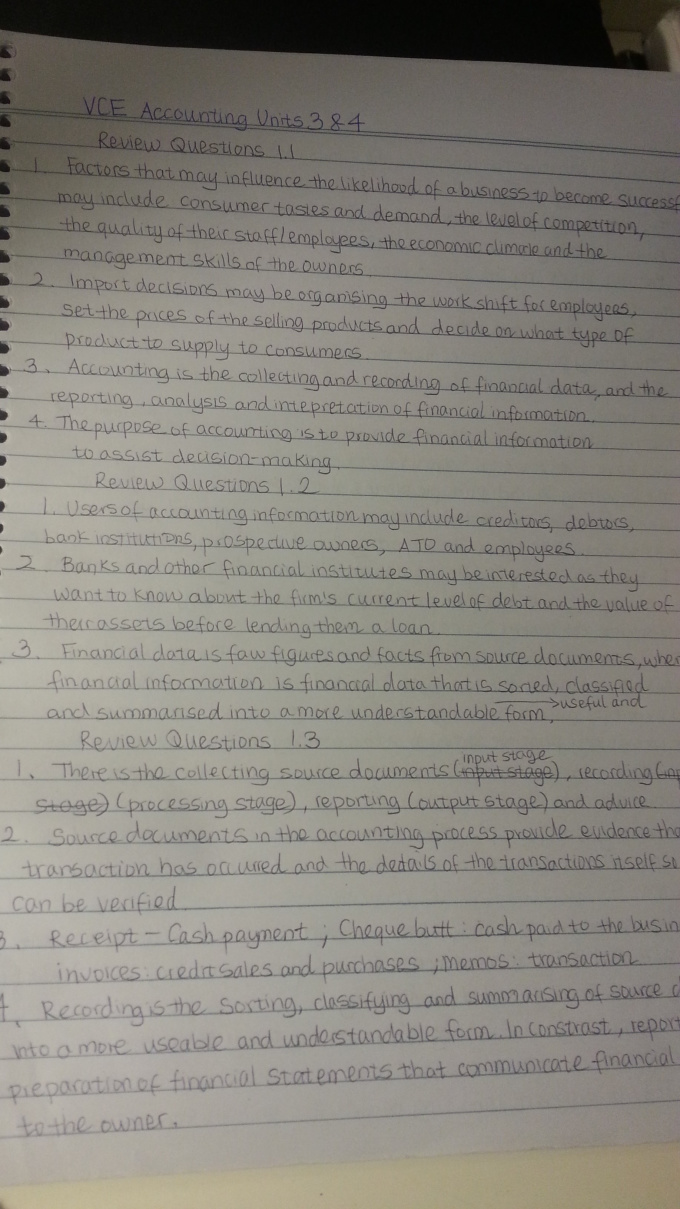 VCE Accounting Units 3 & 4
Review Questions 1.1
1. Factors that may influence the likelihood of a business to become successf
may include consumer tastes and demand, the level of competition,
the quality of their staff/employees, the economic climate and the
management skills of the owners.
2. Import decisions may be organising the work shift for employees,
set the prices of the selling products and decide on what type of
product to supply to consumers.
3. Accounting is the collecting and recording of financial data, and the
reporting, analysis and intepretation of financial information.
4. The purpose of accounting is to provide financial information
to assist decision-making.
Review Questions 1.2
1. Users of accounting information may include creditors, debtors,
bank institutions, prospective owners, ATO and employees.
2. Banks and other financial institutes may be interested as they
want to know about the firm's current level of debt and the value of
their assets before lending them a loan.
3. Financial data is faw figures and facts from source documents, wher
financial information is financial data that is sorted, classified
and summarised into a more understandable form, useful and
Review Questions 1.3
1. There is the collecting source documents (input stage input stage), recording (inp
stage) (processing stage), reporting (output stage) and advice
2. Source documents in the accounting process provide evidence tha
transaction has occurred and the details of the transactions itself so
can be verified
3. Receipt - Cash payment ; Cheque butt : cash paid to the busin
invoices : credit sales and purchases ; memos : transaction
4. Recording is the sorting, classifying and summarising of source d
into a more useable and understandable form. In constrast, report
preparation of financial statements that communicate financial
to the owner.